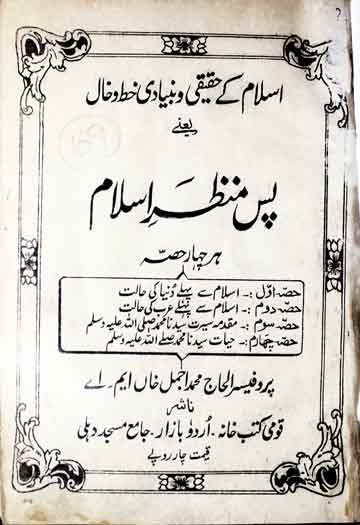 اسلام کے حقیقی و بنیادی خط و خال
یعنے
پس منظرِ اسلام
ہر چہار حصّہ
حصّہ اوّل :- اسلام سے پہلے دُنیا کی حالت
حصّہ دوم :- اسلام سے پہلے عرب کی حالت
حصّہ سوم :- مقدمہ سیرت سیدنا محمد صلی اللہ علیہ وسلم
حصّہ چہارم :- حیات سیدنا محمد صلے اللہ علیہ وسلم
پروفیسر الحاج محمد اجمل خاں ایم - اے
ناشر
قومی کتب خانہ - اُردو بازار - جامع مسجد دہلی
قیمت چار روپے